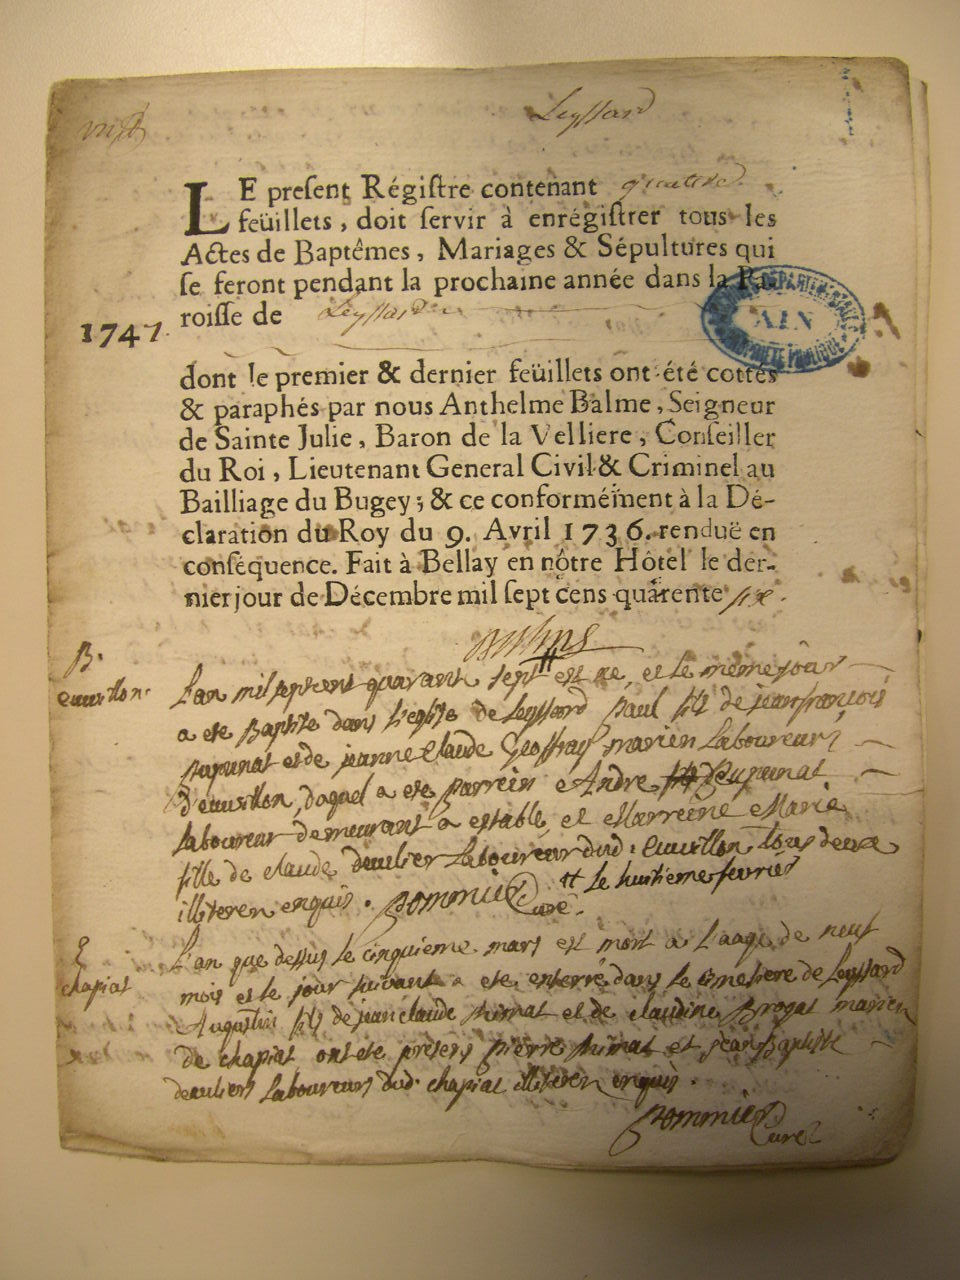 Leyssard
LE present Régistre contenant quatre
feüillets, doit servir à enrégistrer tous les
Actes de Baptêmes, Mariages & Sépultures qui
se feront pendant la prochaine année dans la Pa-
roisse de Leyssard
1747.
dont le premier & dernier feüillets ont été cottés
& paraphés par nous Anthelme Balme, Seigneur
de Sainte Julie, Baron de la Velliere, Conseiller
du Roi, Lieutenant General Civil & Criminel au
Bailliage du Bugey; & ce conformément à la Dé-
claration du Roy du 9. Avril 1736. renduë en
conséquence. Fait à Bellay en nôtre Hôtel le der-
nier jour de Décembre mil sept cens quarente six.
B.
L'an mil sept cent quarante sept # est né, et le même jour
a eté Baptisé dans l'eglise de Leyssard paul fils de jean françois
et de jeanne Claude Geoffray mariés Laboureurs
d'euvillon, duquel a eté parrein Andre
Laboureur demeurant a estable, et Marreine Marie
fille de claude Laboureur dud. Euvillon tous deux
enquis. pommier Curé. # Le huitieme fevrier
chapiat
L'an que dessus le cinquieme mars est mort a l'aage de neuf
mois et le jour suivant a eté enterré dans le cimetiere de Leyssard
Augustin fils de jean claude et de claudine mariés
de chapiat ont eté présens pierre et jean Baptiste
Laboureurs dud. chapiat enquis.
pommier
Curé
ARCHIVES DÉPARTEMENTALES
AIN
PROPRIÉTÉ PUBLIQUE